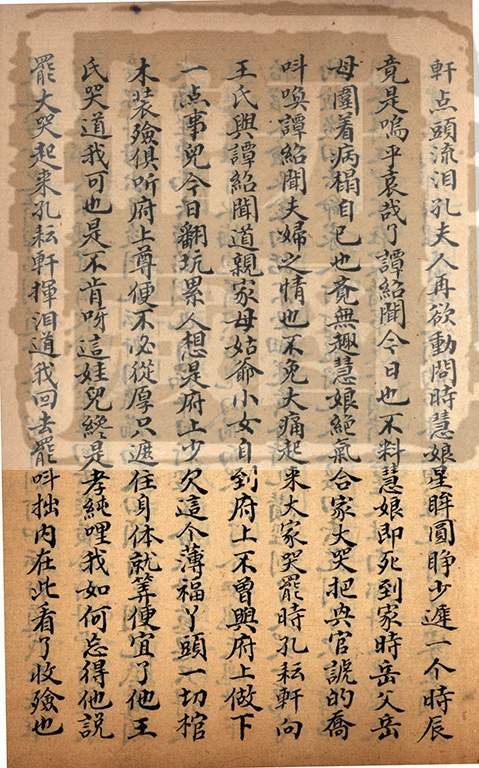 軒点頭流泪孔夫人再欲動問時慧娘星眸圓睁少遲一个時辰
竟是嗚乎哀哉了譚紹聞今日也不料慧娘即死到家時岳父岳
母圍着病榻自已也竟無趣慧娘絕氣合家大哭把典官諕的喬
呌喚譚紹聞夫婦之情也不免大痛起来大家哭罷時孔耘軒向
王氏與譚紹聞道親家母姑爺小女自到府上不曽與府上做下
一点事兒今日翻坑累人想是府上少欠這个薄福丫頭一切棺
木裝殮俱听府上尊便不必從厚只遮住身体就算便宜了他王
氏哭道我可也是不肯呀這娃兒終是孝純哩我如何忘得他説
罷大哭起来孔耘軒揮泪道我回去罷呌拙内在此看了收殮也